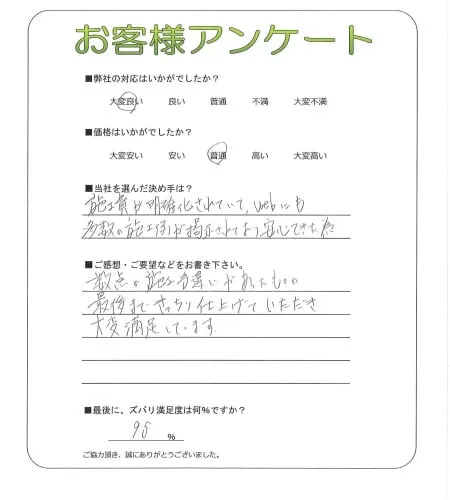 お客様アンケート
■弊社の対応はいかがでしたか？
大変良い 良い 普通 不満 大変不満
■価格はいかがでしたか？
大変安い 安い 普通 高い 大変高い
■当社を選んだ決め手は？
施工費が明確化されていて、Webにも
多数の施工例が掲示されており安心できた為
■ご感想・ご要望などをお書き下さい。
数点の施工手違いがあったものの
最後まできっちり仕上げていただき
大変満足しています。
■最後に、ズバリ満足度は何%ですか？
95 %
ご協力頂き、誠にありがとうございました。